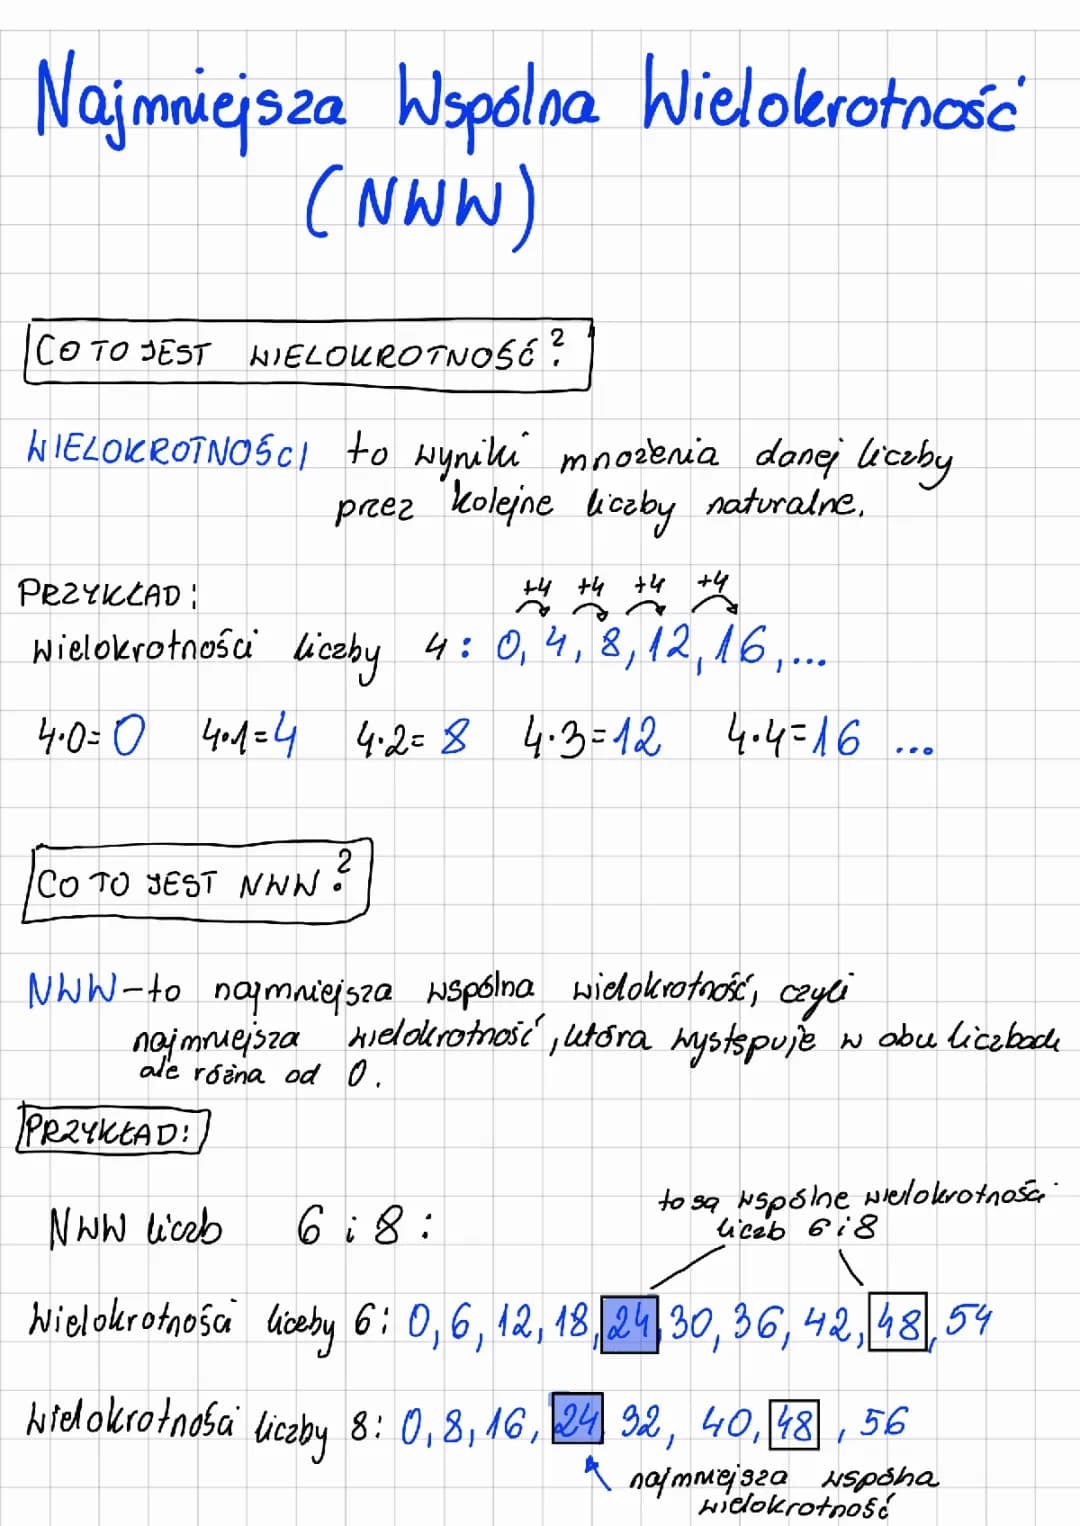 Najmniejsza Wspólna Wielokrotność
(NWW)
CO TO JEST WIELOKROTNOŚĆ?
WIELOKROTNOŚCI to wyniki mnożenia danej liczby
przez kolejne liczby naturalne.
PRZYKŁAD:
+4 +4 +4 +4
wielokrotności liczby 4: 0, 4, 8, 12, 16, ...
4·0=0 4·1=4 4·2=8 4·3=12 4·4=16 ...
CO TO JEST NWW?
NWW-to najmniejsza wspólna wielokrotność, czyli
najmniejsza wielokrotność, która występuje w obu liczbach
ale różna od 0.
PRZYKŁAD:
to są wspólne wielokrotności
NWW liczb 6 i 8:
liczb 6 i 8
Wielokrotności liczby 6: 0, 6, 12, 18, 24, 30, 36, 42, 48, 54
wielokrotności liczby 8: 0, 8, 16, 24 32, 40, 48, 56
najmniejsza wspólna
wielokrotność